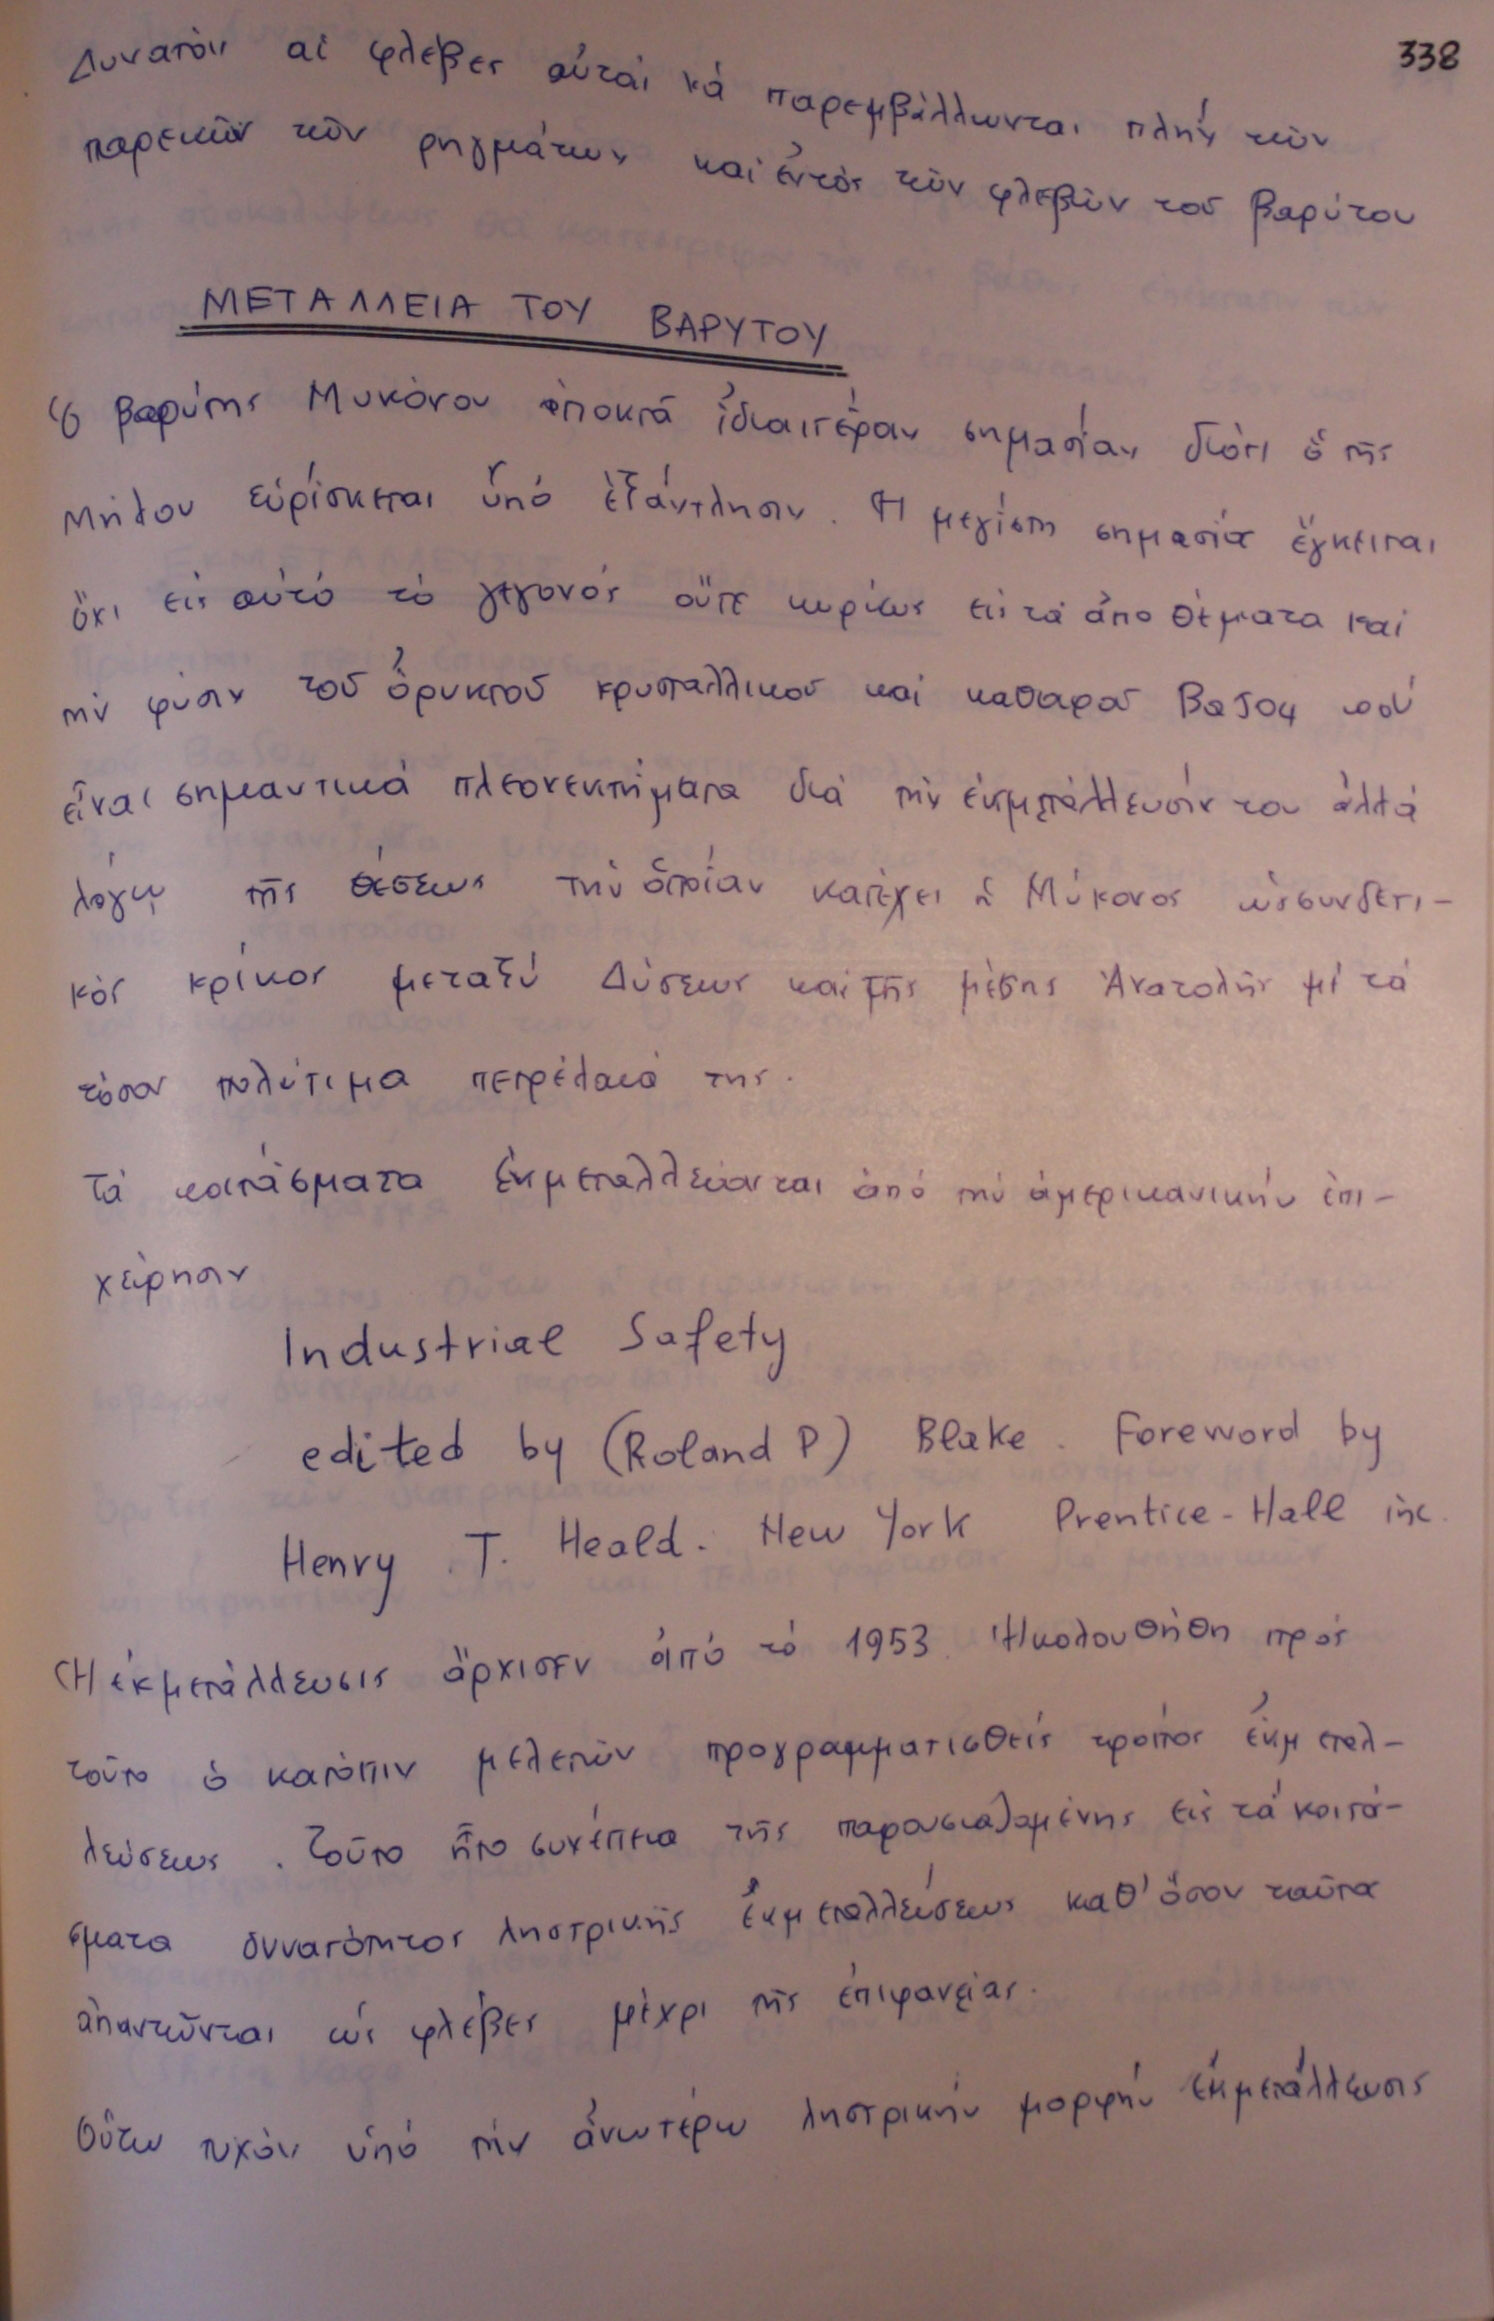 338
Δυνατόν αἱ φλέβες αὗται νά παρεμβάλλωνται πλήν τῶν
παρειῶν τῶν ρηγμάτων καί ἐντός τῶν φλεβῶν τοῦ βαρύτου
ΜΕΤΑΛΛΕΙΑ ΤΟΥ ΒΑΡΥΤΟΥ
Ὁ βαρύτης Μυκόνου ἀποκτᾶ ἰδιαιτέραν σημασίαν διότι ὁ τῆς
Μήλου εὑρίσκεται ὑπό ἐξάντλησιν. Ἡ μεγίστη σημασία ἔγκειται
ὄχι εἰς αὐτό τό γεγονός οὔτε κυρίως εἰς τά ἀποθέματα καί
τήν φύσιν τοῦ ὀρυκτοῦ κρυσταλλικοῦ καί καθαροῦ BaSO4 πού
εἶναι σημαντικά πλεονεκτήματα διά τήν ἐκμετάλλευσίν του ἀλλά
λόγῳ τῆς θέσεως τήν ὁποίαν κατέχει ἡ Μύκονος ὡς συνδετι-
κός κρίκος μεταξύ Δύσεως καί τῆς μέσης Ἀνατολῆς μέ τά
τόσον πολύτιμα πετρέλαιά της.
Τά κοιτάσματα ἐκμεταλλεύονται ἀπό τήν ἀμερικανικήν ἐπι-
χείρησιν
Industrial Safety
edited by (Roland P) Blake. Foreword by
Henry T. Heald. New York Prentice-Hall inc.
Ἡ ἐκμετάλλευσις ἄρχισεν ἀπό τό 1953. Ἠκολουθήθη πρός
τοῦτο ὁ κατόπιν μελετῶν προγραμματισθείς τρόπος ἐκμεταλ-
λεύσεως. Τοῦτο ἦτο συνέπεια τῆς παρουσιαζομένης εἰς τά κοιτά-
σματα δυνατότητος ληστρικῆς ἐκμεταλλεύσεως καθ' ὅσον ταῦτα
ἀπαντῶνται ὡς φλέβες μέχρι τῆς ἐπιφανείας.
Οὕτω τυχόν ὑπό τήν ἀνωτέρω ληστρικήν μορφήν ἐκμετάλλευσις